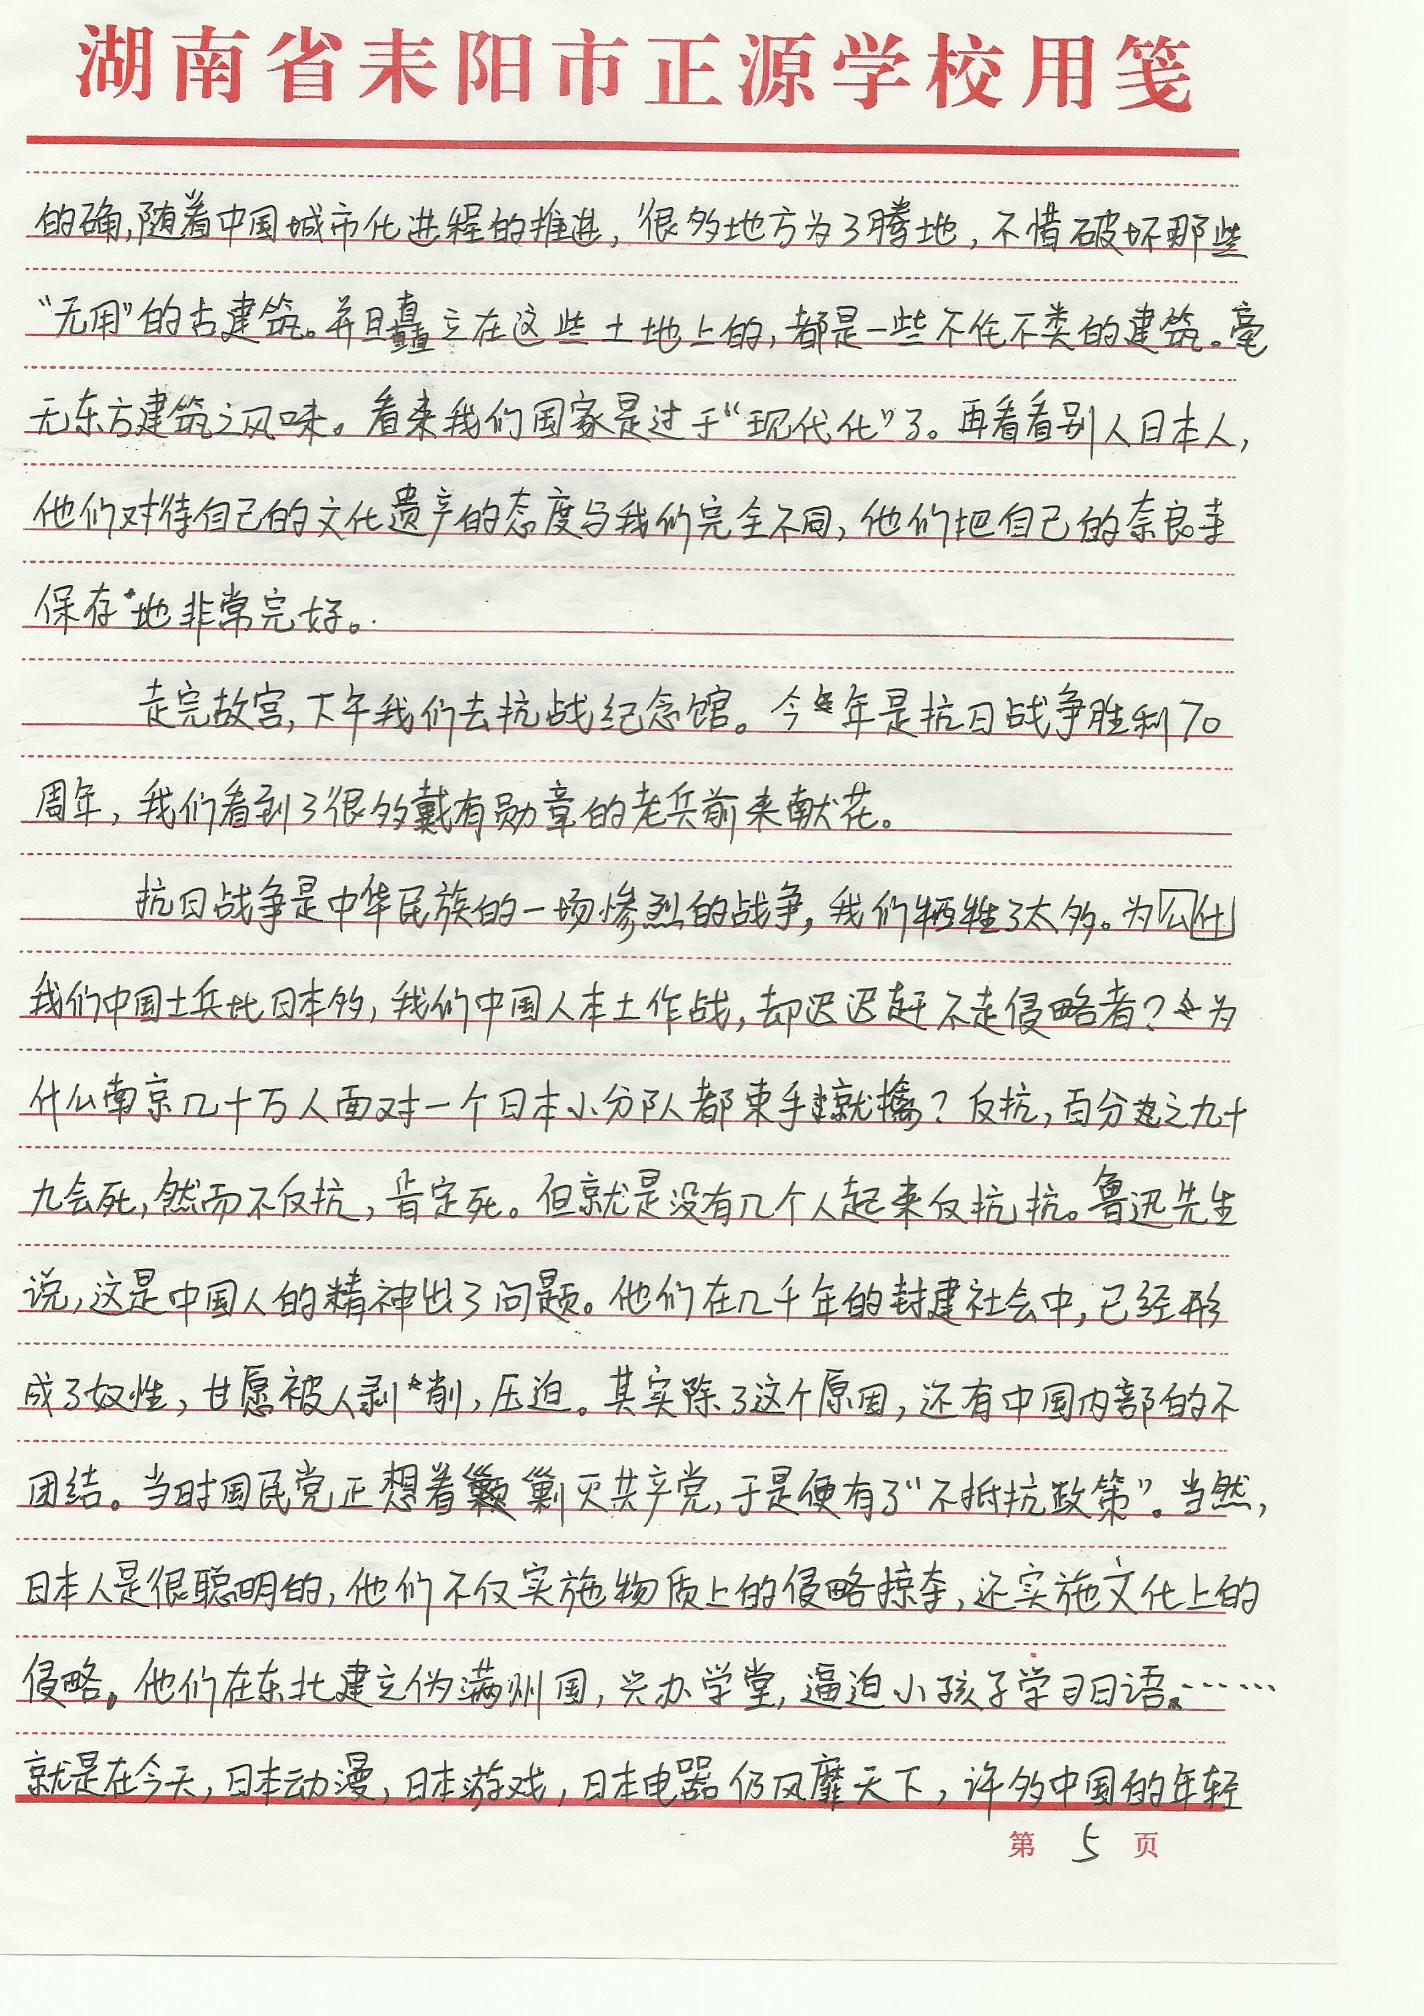 湖南省耒阳市正源学校用笺
的确,随着中国城市化进程的推进,很多地方为了腾地,不惜破坏那些
“无用”的古建筑。并且矗立在这些土地上的,都是一些不伦不类的建筑。毫
无东方建筑之风味。看来我们国家是过于“现代化”了。再看看别人日本人,
他们对待自己的文化遗产的态度与我们完全不同,他们把自己的奈良寺
保存地非常完好。
走完故宫,下午我们去抗战纪念馆。今年是抗日战争胜利70
周年,我们看到了很多戴有勋章的老兵前来献花。
抗日战争是中华民族的一场惨烈的战争,我们牺牲了太多。为么什
我们中国士兵比日本多,我们中国人本土作战,却迟迟赶不走侵略者?为
什么南京几十万人面对一个日本小分队都束手就擒?反抗,百分之九十
九会死,然而不反抗,肯定死。但就是没有几个人起来反抗抗。鲁迅先生
说,这是中国人的精神出了问题。他们在几千年的封建社会中,已经形
成了奴性,甘愿被人剥削,压迫。其实除了这个原因,还有中国内部的不
团结。当时国民党正想着剿灭共产党,于是便有了“不抵抗政策”。当然,
日本人是很聪明的,他们不仅实施物质上的侵略掠夺,还实施文化上的
侵略。他们在东北建立伪满州国,兴办学堂,逼迫小孩子学习日语……
就是在今天,日本动漫,日本游戏,日本电器仍风靡天下,许多中国的年轻
第 5 页